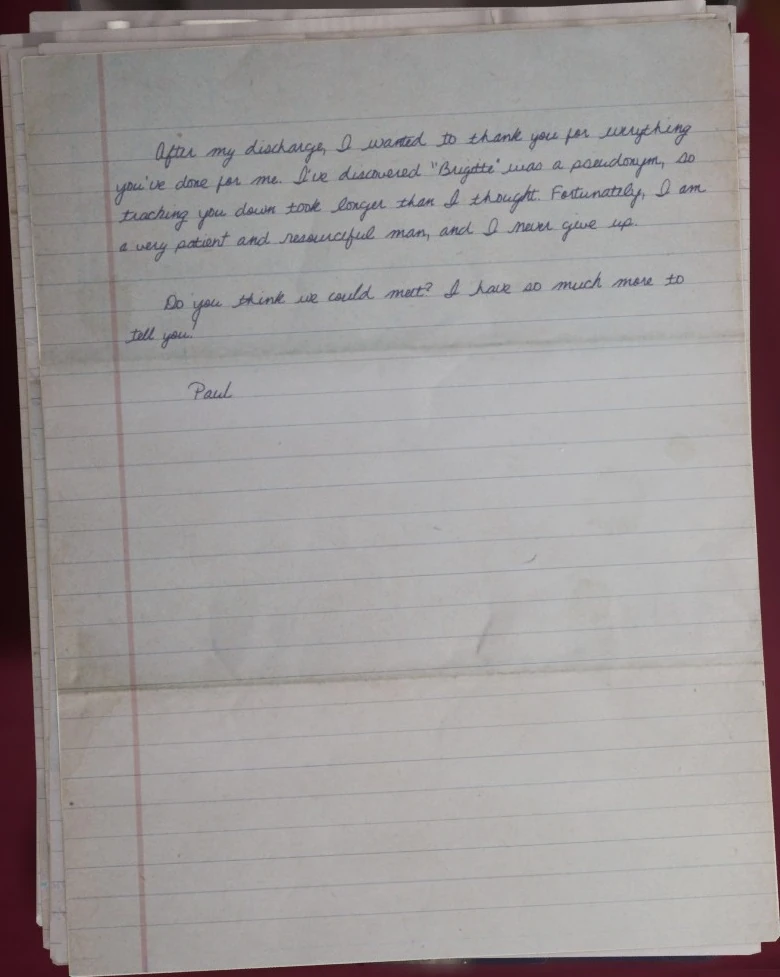 After my discharge, I wanted to thank you for everything
you've done for me. I've discovered "Brigitte" was a pseudonym, so
tracking you down took longer than I thought. Fortunately, I am
a very patient and resourceful man, and I never give up.
Do you think we could meet? I have so much more to
tell you!
Paul